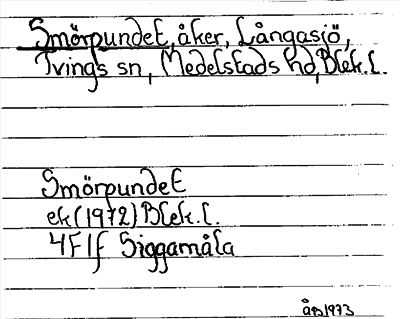 Smörpundet, åker, Långasjö,
Tvings sn, Medelstads hd, Blek.l.
Smörpundet
ek (1972) Blek.l.
4F1f Siggamåla
ÅB 1973